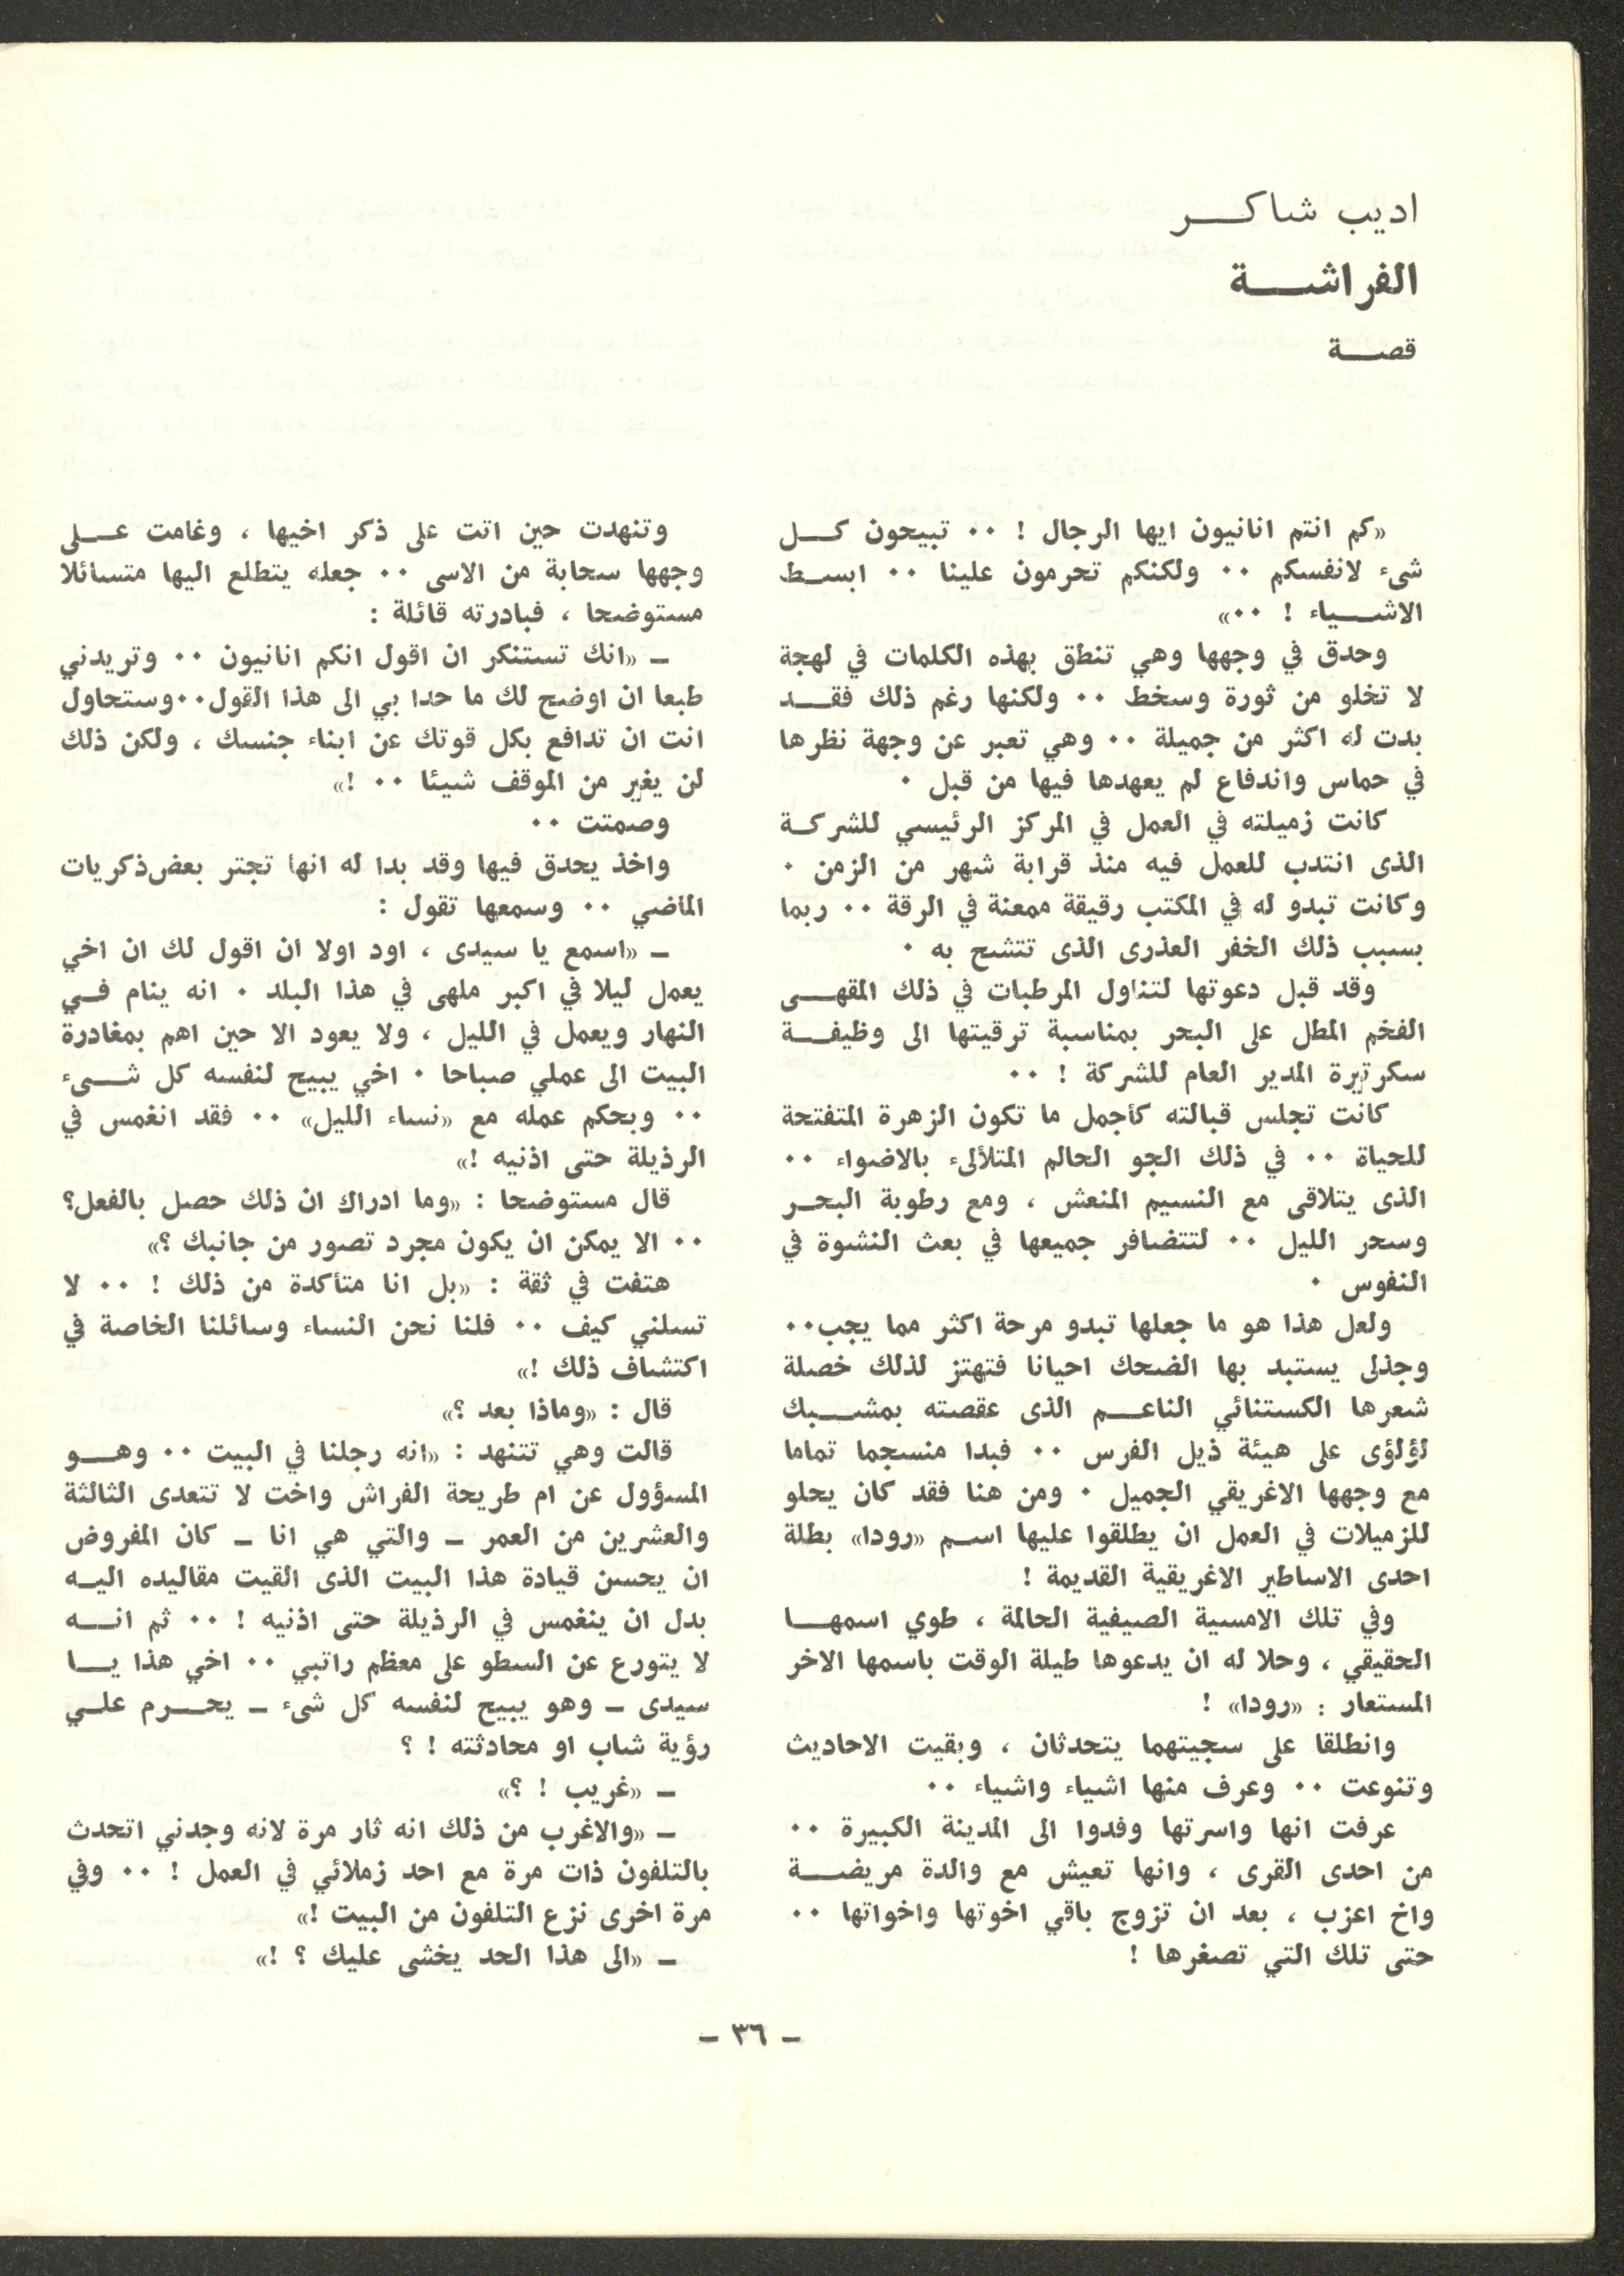 اديب شاكر
الفراشة
قصة
«كم انتم انانيون ايها الرجال ! ٠٠ تبيحون كل
شىء لانفسكم ٠٠ ولكنكم تحرمون علينا ٠٠ ابسط
الاشياء ! ٠٠»
وحدق في وجهها وهي تنطق بهذه الكلمات في لهجة
لا تخلو من ثورة وسخط ٠٠ ولكنها رغم ذلك فقد
بدت له اكثر من جميلة ٠٠ وهي تعبر عن وجهة نظرها
في حماس واندفاع لم يعهدها فيها من قبل ٠
كانت زميلته في العمل في المركز الرئيسي للشركة
الذى انتدب للعمل فيه منذ قرابة شهر من الزمن ٠
وكانت تبدو له في المكتب رقيقة ممعنة في الرقة ٠٠ ربما
بسبب ذلك الخفر العذرى الذى تتشح به ٠
وقد قبل دعوتها لتناول المرطبات في ذلك المقهى
الفخم المطل على البحر بمناسبة ترقيتها الى وظيفة
سكرتيرة المدير العام للشركة ! ٠٠
كانت تجلس قبالته كأجمل ما تكون الزهرة المتفتحة
للحياة ٠٠ في ذلك الجو الحالم المتلألىء بالاضواء ٠٠
الذى يتلاقى مع النسيم المنعش ، ومع رطوبة البحر
وسحر الليل ٠٠ لتتضافر جميعها في بعث النشوة في
النفوس ٠
ولعل هذا هو ما جعلها تبدو مرحة اكثر مما يجب٠٠
وجذلى يستبد بها الضحك احيانا فتهتز لذلك خصلة
شعرها الكستنائي الناعم الذى عقصته بمشبك
لؤلؤى على هيئة ذيل الفرس ٠٠ فبدا منسجما تماما
مع وجهها الاغريقي الجميل ٠ ومن هنا فقد كان يحلو
للزميلات في العمل ان يطلقوا عليها اسم «رودا» بطلة
احدى الاساطير الاغريقية القديمة !
وفي تلك الامسية الصيفية الحالمة ، طوي اسمها
الحقيقي ، وحلا له ان يدعوها طيلة الوقت باسمها الاخر
المستعار : «رودا» !
وانطلقا على سجيتهما يتحدثان ، وبقيت الاحاديث
وتنوعت ٠٠ وعرف منها اشياء واشياء ٠٠
عرفت انها واسرتها وفدوا الى المدينة الكبيرة ٠٠
من احدى القرى ، وانها تعيش مع والدة مريضة
واخ اعزب ، بعد ان تزوج باقي اخوتها واخواتها ٠٠
حتى تلك التي تصغرها !
وتنهدت حين اتت على ذكر اخيها ، وغامت على
وجهها سحابة من الاسى ٠٠ جعله يتطلع اليها متسائلا
مستوضحا ، فبادرته قائلة :
ـ «انك تستنكر ان اقول انكم انانيون ٠٠ وتريدني
طبعا ان اوضح لك ما حدا بي الى هذا القول٠٠وستحاول
انت ان تدافع بكل قوتك عن ابناء جنسك ، ولكن ذلك
لن يغير من الموقف شيئا ٠٠ !»
وصمتت ٠٠
واخذ يحدق فيها وقد بدا له انها تجتر بعض ذكريات
الماضي ٠٠ وسمعها تقول :
ـ «اسمع يا سيدى ، اود اولا ان اقول لك ان اخي
يعمل ليلا في اكبر ملهى في هذا البلد ٠ انه ينام في
النهار ويعمل في الليل ، ولا يعود الا حين اهم بمغادرة
البيت الى عملي صباحا ٠ اخي يبيح لنفسه كل شىء
٠٠ وبحكم عمله مع «نساء الليل» ٠٠ فقد انغمس في
الرذيلة حتى اذنيه !»
قال مستوضحا : «وما ادراك ان ذلك حصل بالفعل؟
٠٠ الا يمكن ان يكون مجرد تصور من جانبك ؟»
هتفت في ثقة : «بل انا متأكدة من ذلك ! ٠٠ لا
تسلني كيف ٠٠ فلنا نحن النساء وسائلنا الخاصة في
اكتشاف ذلك !»
قال : «وماذا بعد ؟»
قالت وهي تتنهد : «انه رجلنا في البيت ٠٠ وهو
المسؤول عن ام طريحة الفراش واخت لا تتعدى الثالثة
والعشرين من العمر ـ والتي هي انا ـ كان المفروض
ان يحسن قيادة هذا البيت الذى القيت مقاليده اليه
بدل ان ينغمس في الرذيلة حتى اذنيه ! ٠٠ ثم انه
لا يتورع عن السطو على معظم راتبي ٠٠ اخي هذا يا
سيدى ـ وهو يبيح لنفسه كل شىء ـ يحرم علي
رؤية شاب او محادثته ! ؟
ـ «غريب ! ؟»
ـ «والاغرب من ذلك انه ثار مرة لانه وجدني اتحدث
بالتلفون ذات مرة مع احد زملائي في العمل ! ٠٠ وفي
مرة اخرى نزع التلفون من البيت !»
ـ «الى هذا الحد يخشى عليك ؟ !»
ـ ٣٦ ـ